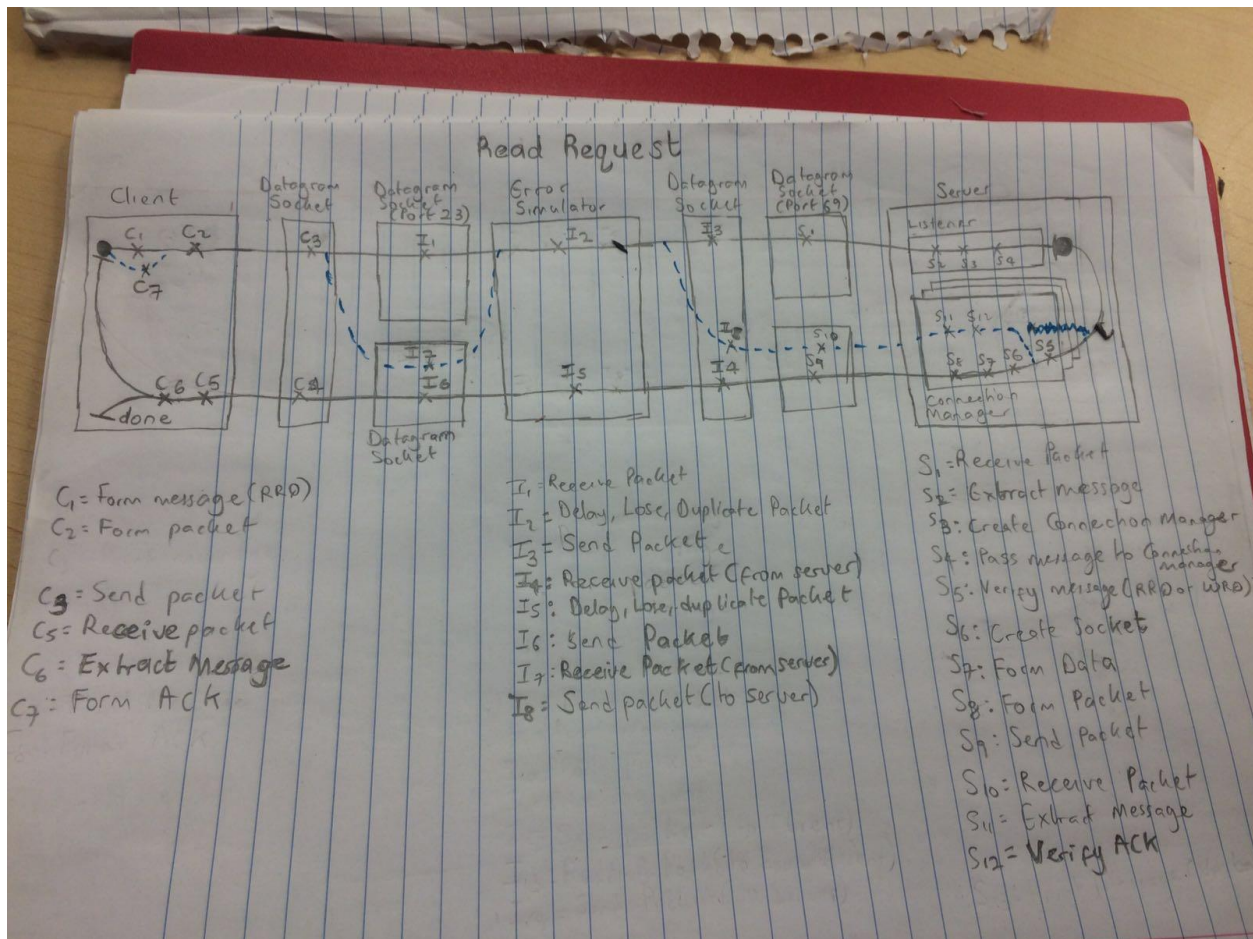 Read Request
Client
Datagram
Socket
Datagram
Socket
(Port 23)
Error
Simulator
Datagram
Socket
Datagram
Socket
(Port 69)
Server
Listener
C1
C2
C7
C3
I1
I2
I3
S1
S2
S3
S4
S11
S12
I7
I8
S10
S5
C6
C5
C4
I6
I5
I4
S9
S8
S7
S6
done
Connection
Manager
Datagram
Socket
C1 = Form message (RRD)
C2 = Form packet
C3 = Send packet
C5 = Receive packet
C6 = Extract Message
C7 = Form ACK
I1 = Receive Packet
I2 = Delay, Lose, Duplicate Packet
I3 = Send Packet
I4: Receive packet (from server)
I5: Delay, Lose, duplicate Packet
I6: Send Packet
I7: Receive Packet (from server)
I8 = Send packet (to server)
S1 = Receive Packet
S2 = Extract message
S3: Create Connection Manager
S4: Pass message to Connection
manager
S5: Verify message (RRD or WRD)
S6: Create Socket
S7: Form Data
S8: Form Packet
S9: Send Packet
S10: Receive Packet
S11 = Extract Message
S12 = Verify ACK